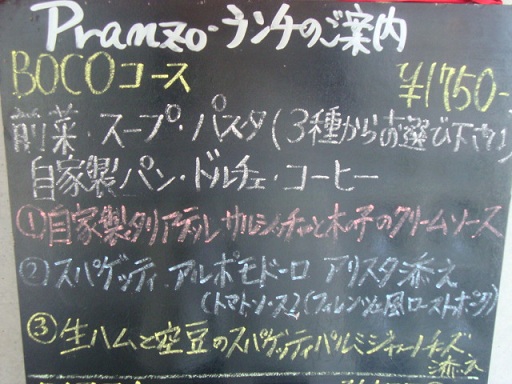 Pranzo-ランチのご案内
BOCOコース ¥1750-
前菜・スープ・パスタ(3種からお選び下さい)
自家製パン・ドルチェ・コーヒー
①自家製タリアテッレ サルシッチャと木の子のクリームソース
②スパゲッティ アルポモドーロ アリスタ添え
(トマトソース)(フィレンツェ風ローストポーク)
③生ハムと空豆のスパゲッティ パルミジャーノチーズ
添え